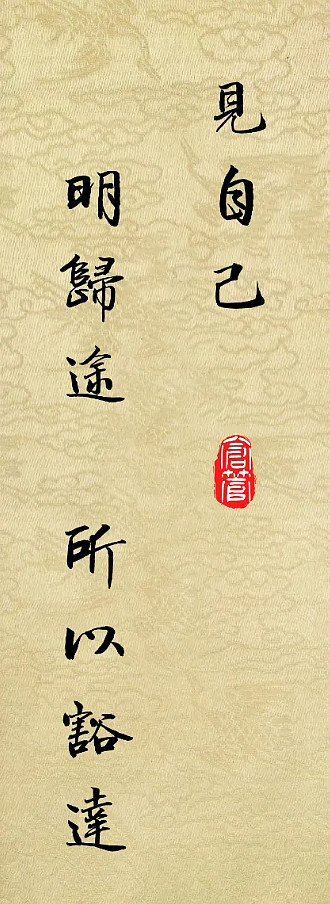 見自己
明歸途 所以豁達